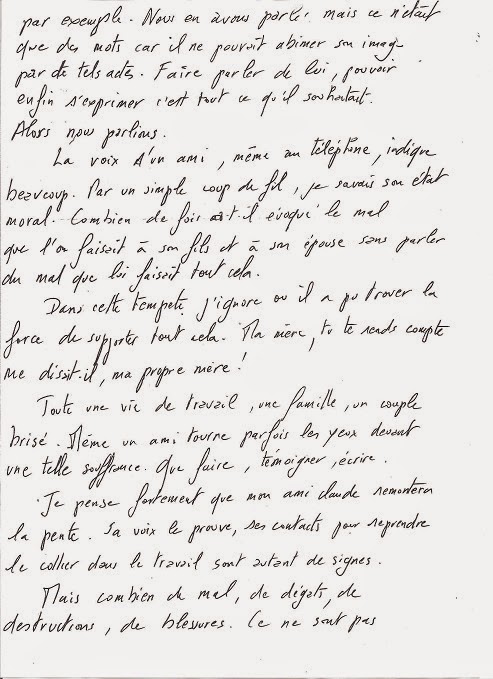 par exemple. Nous en avons parler mais ce n'était
que des mots car il ne pouvait abimer son imag
par de tels actes. Faire parler de lui, pouvoir
enfin s'exprimer c'est tout ce qu'il souhaitait.
Alors nous parlions.
La voix d'un ami, même au téléphone, indique
beaucoup. Par un simple coup de fil, je savais son état
moral. Combien de fois a-t-il évoqué le mal
que l'on faisait à son fils et à son épouse sans parler
du mal que lui faisait tout cela.
Dans cette tempete, j'ignore ou il a pu trouver la
force de supporter tout cela. Ma mère, tu te rends compte
me disait-il, ma propre mère !
Toute une vie de travail, une famille, un couple
brisé. Même un ami tourne parfois les yeux devant
une telle souffrance. Que faire, témoigner, écrire.
Je pense fortement que mon ami claude remontera
la pente. Sa voix le prouve, ses contacts pour reprendre
le collier dans le travail sont autant de signes.
Mais combien de mal, de dégats, de
destructions, de blessures. Ce ne sont pas